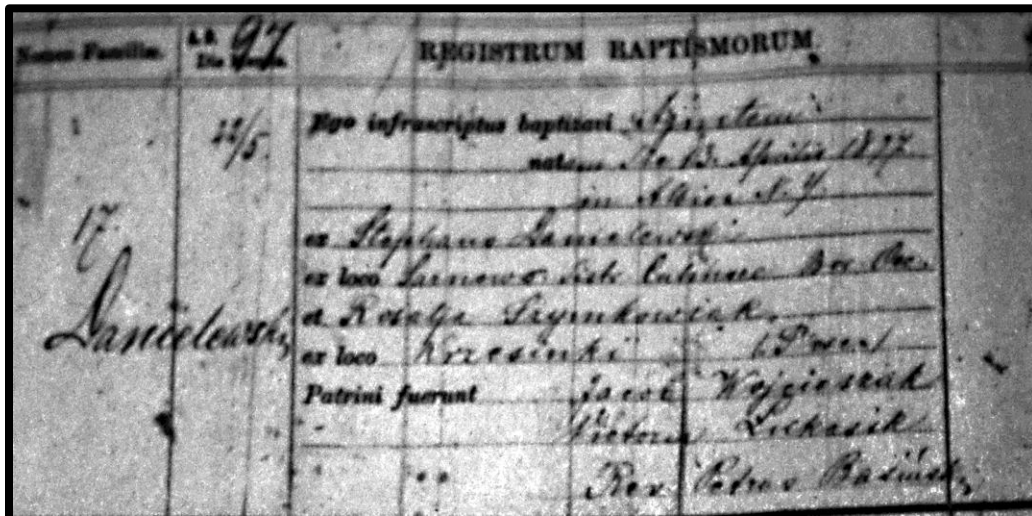 Nomen Familiæ. A. D. 97 REGISTRUM BAPTISMORUM
Die
22/5 Ego infrascriptus baptizavi
natum die 13. Aprilis 1897
in Albion N. Y.
17. ex Stephano Danielewski
ex loco Sarnowo
Danielewski et Rosalja Szymkowiak
ex loco Krzesinki (Posen)
Patrini fuerunt Jacob Wojcieszak
Victoria Lukasik
Rev. Petrus Basinski